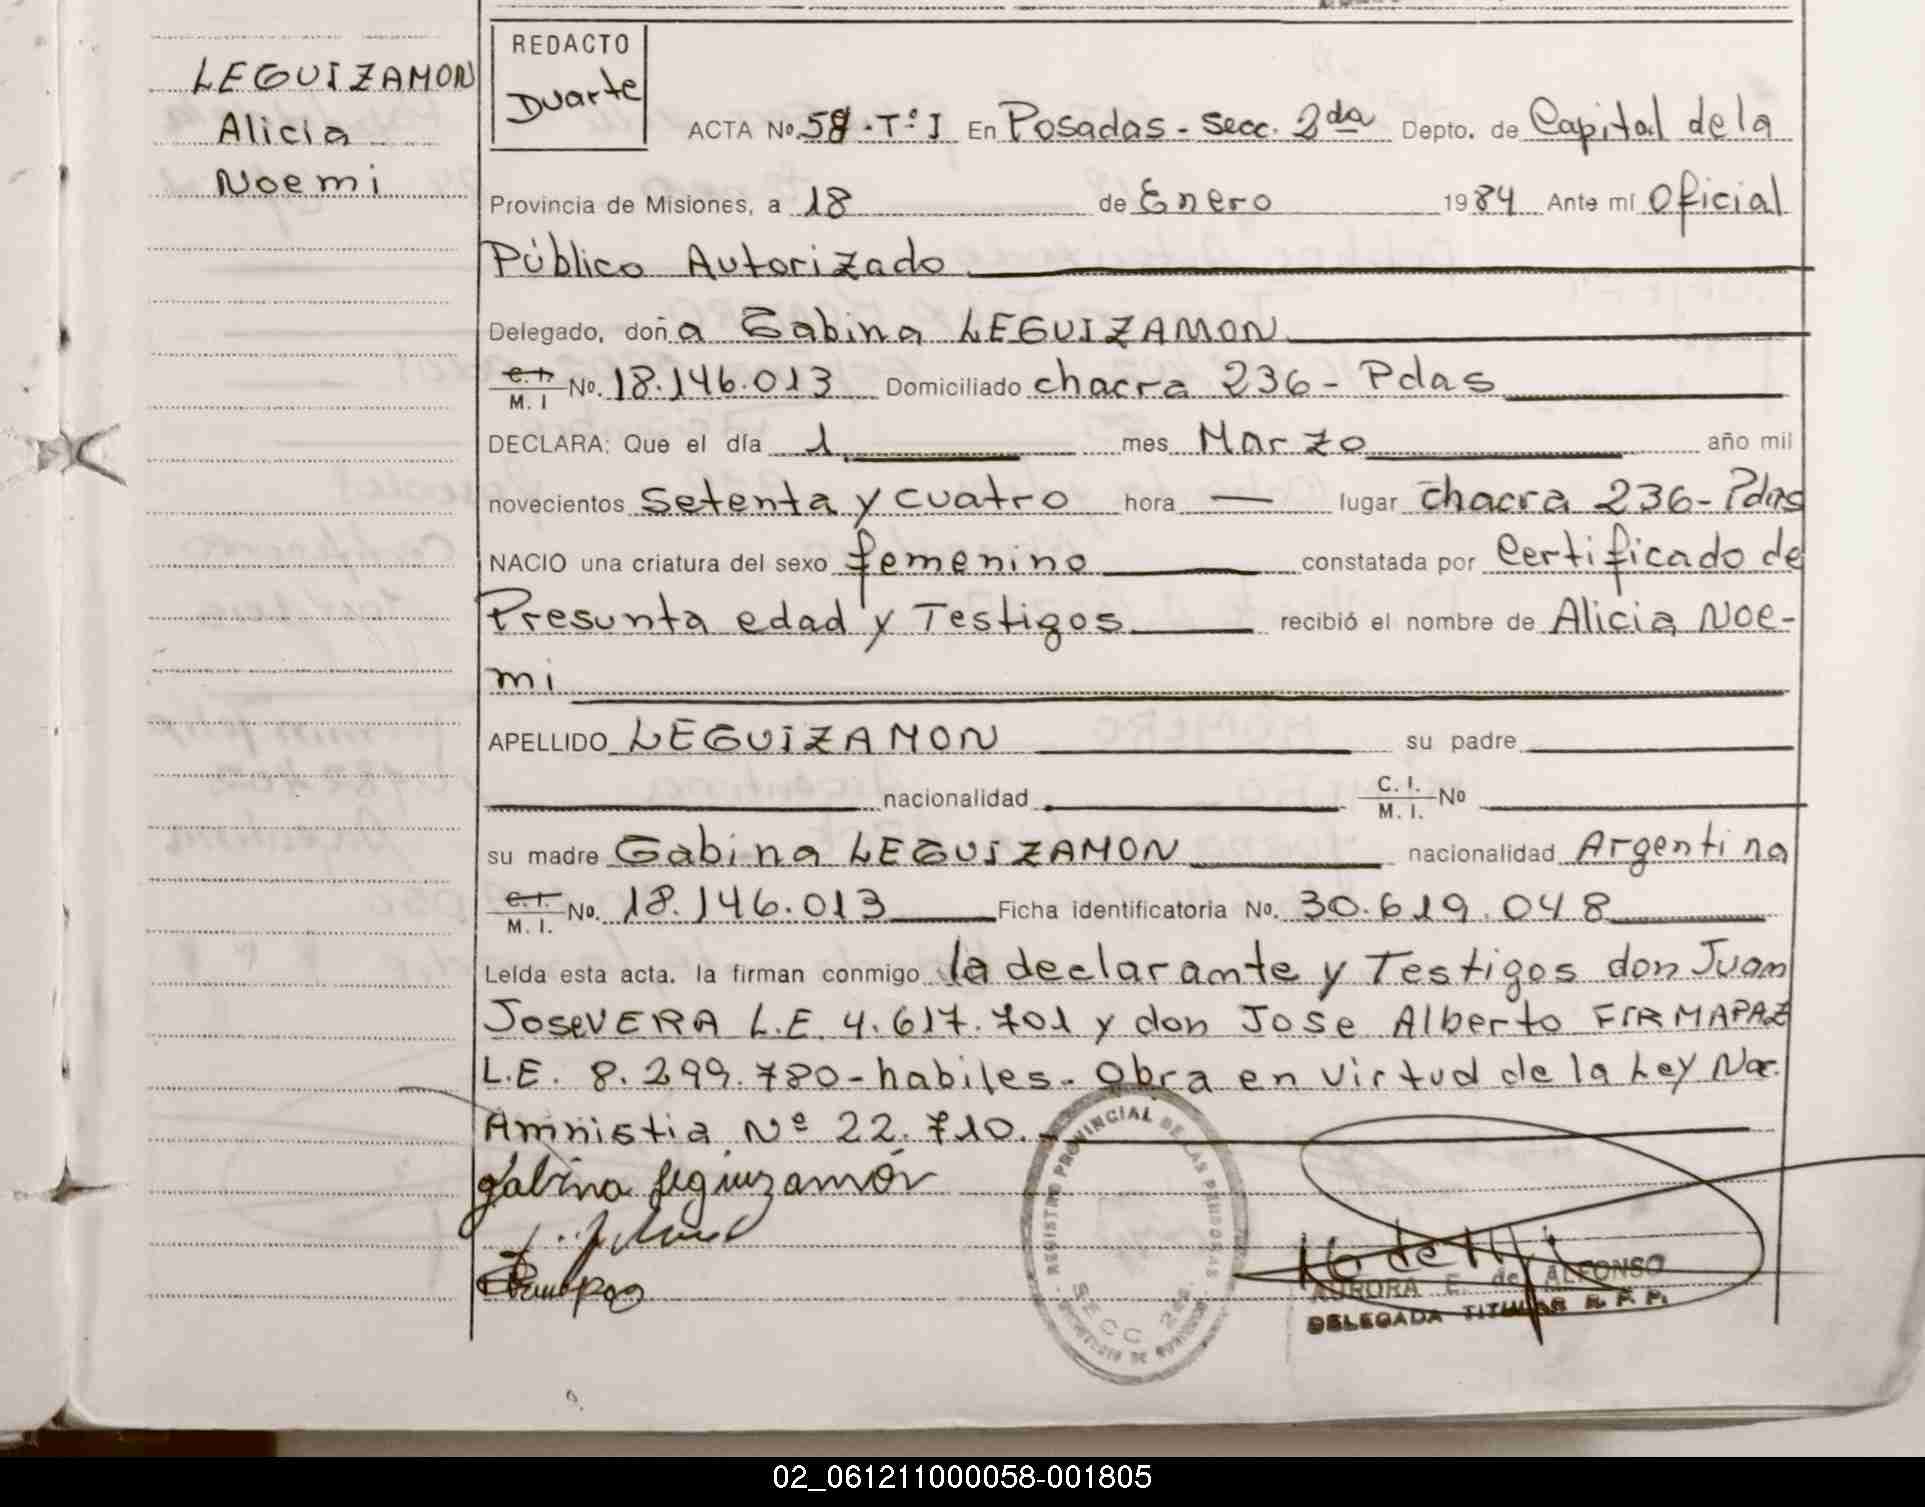 LEGUIZAMON
Alicia
Noemi
REDACTO
Duarte
ACTA No. 58 - Tº I En Posadas - Secc. 2da Depto. de Capital de la
Provincia de Misiones, a 18 de Enero 1984 Ante mí Oficial
Público Autorizado
Delegado, doña Gabina LEGUIZAMON
C. I. M. I No. 18.146.013 Domiciliado chacra 236 - Pdas
DECLARA: Que el día 1 mes Marzo año mil
novecientos setenta y cuatro hora — lugar chacra 236 - Pdas
NACIO una criatura del sexo femenino constatada por Certificado de
Presunta edad y Testigos recibió el nombre de Alicia Noe-
mi
APELLIDO LEGUIZAMON su padre
nacionalidad C. I. M. I. No
su madre Gabina LEGUIZAMON nacionalidad Argentina
C. I. M. I. No. 18.146.013 Ficha identificatoria No. 30.619.048
Leída esta acta, la firman conmigo la declarante y Testigos don Juan
Jose VERA L.E. 4.617.701 y don Jose Alberto FIRMAPAZ
L.E. 8.299.780 - habiles - Obra en virtud de la Ley Nac.
Amnistia Nº 22.710.-
Gabina Leguizamón
REGISTRO PROVINCIAL DE LAS PERSONAS
SECC 2da
AURORA E. de ALFONSO
DELEGADA TITULAR R. P. P.
02_061211000058-001805